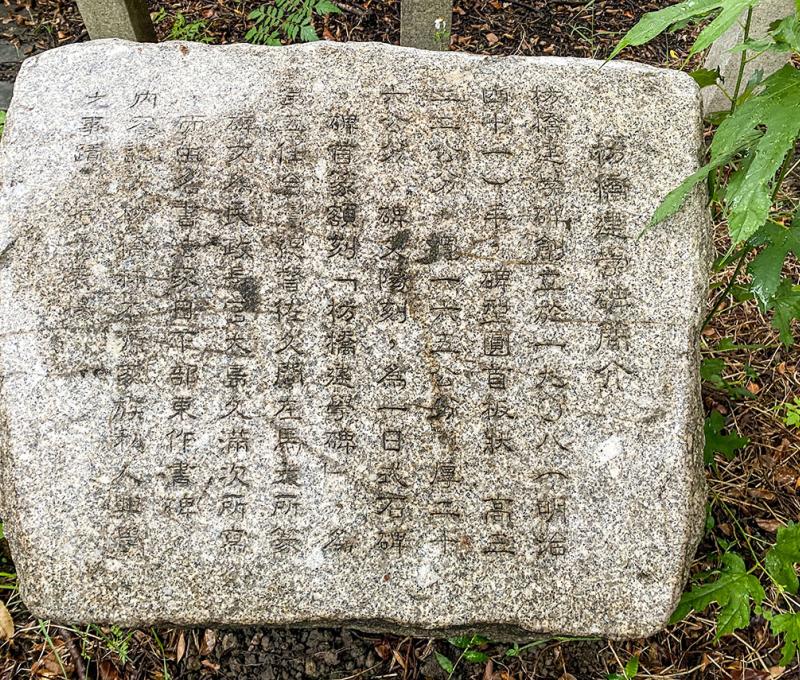 枋橋建學碑簡介
枋橋建學碑創立於一九〇八(明治
四十一)年,碑型圓首板狀,高三
二二公分,寬一六五公分,厚二十
六公分,碑文陽刻,為一日式石碑
。碑首篆額刻「枋橋建學碑」,為
第五任台灣總督佐久間左馬太所篆
,碑文為民政長官大島久滿次所寫
,而由名書法家日下部東作書碑,
內文記枋橋林本源家族私人興學
之事蹟